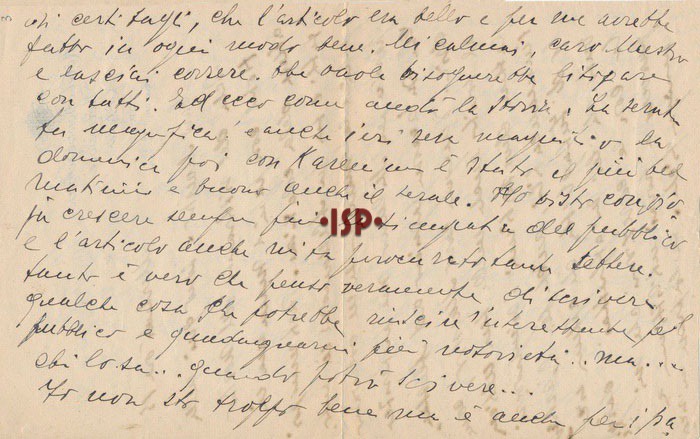 di certi tagli, che l'articolo era bello e per me avrebbe
fatto in ogni modo bene. Mi calmai, caro Maestro
e lasciai correre. Che vuole bisognerebbe litigare
con tutti. Ed ecco come andò la storia. La serata
fu magnifica! e anche ieri sera magnifico la
domenica poi con Karenina è stato il più bel
mattinée e buono anche il serale. Ho visto con gioia
crescere sempre più la simpatia del pubblico
e l'articolo anche mi ha procurato tante lettere.
tanto è vero che penso veramente di scrivere
qualche cosa che potrebbe riuscire interessante pel
pubblico e guadagnarmi più notorietà... ma....
chi lo sa... quando potrò scrivere...
Io non sto troppo bene ma è anche per
·ISP·